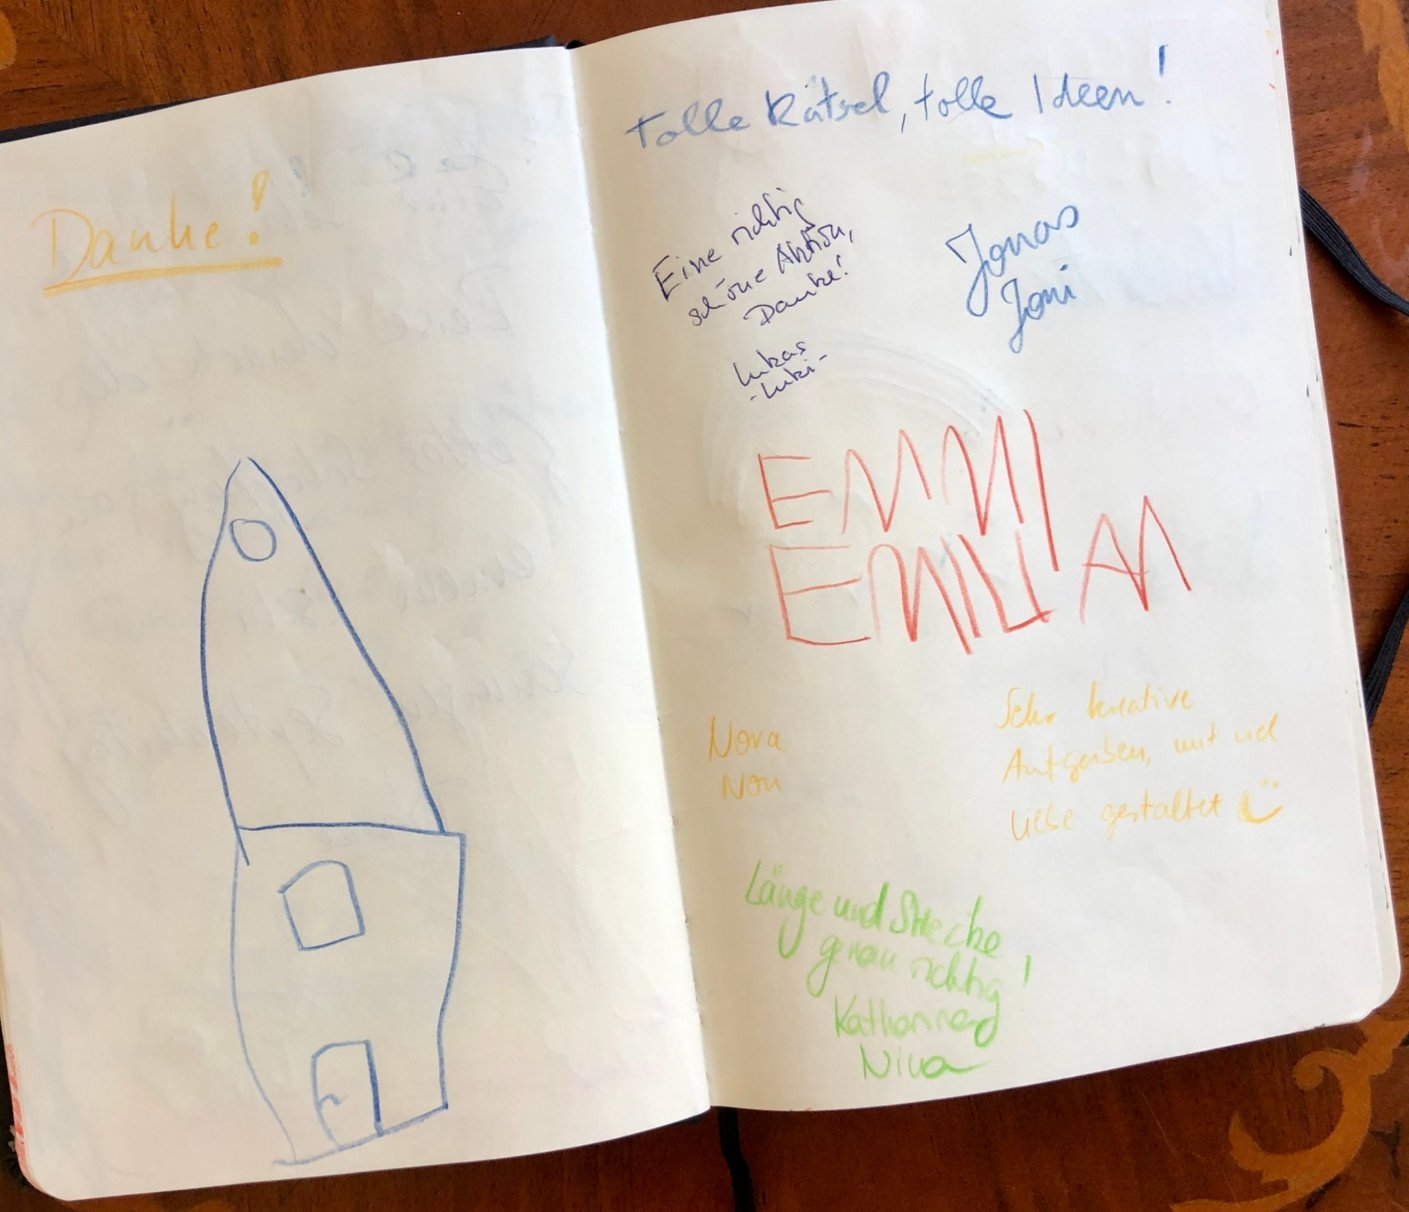 Danke!
Tolle Rätsel, tolle Ideen!
Eine richtig
schöne Aktion,
Danke!
Lukas
-Luki-
Jonas
Joni
EMMI
EMILIAN
Nora
Nori
Sehr kreative
Aufgaben, mit viel
Liebe gestaltet
Länge und Strecke
genau richtig!
Katharina
Nina